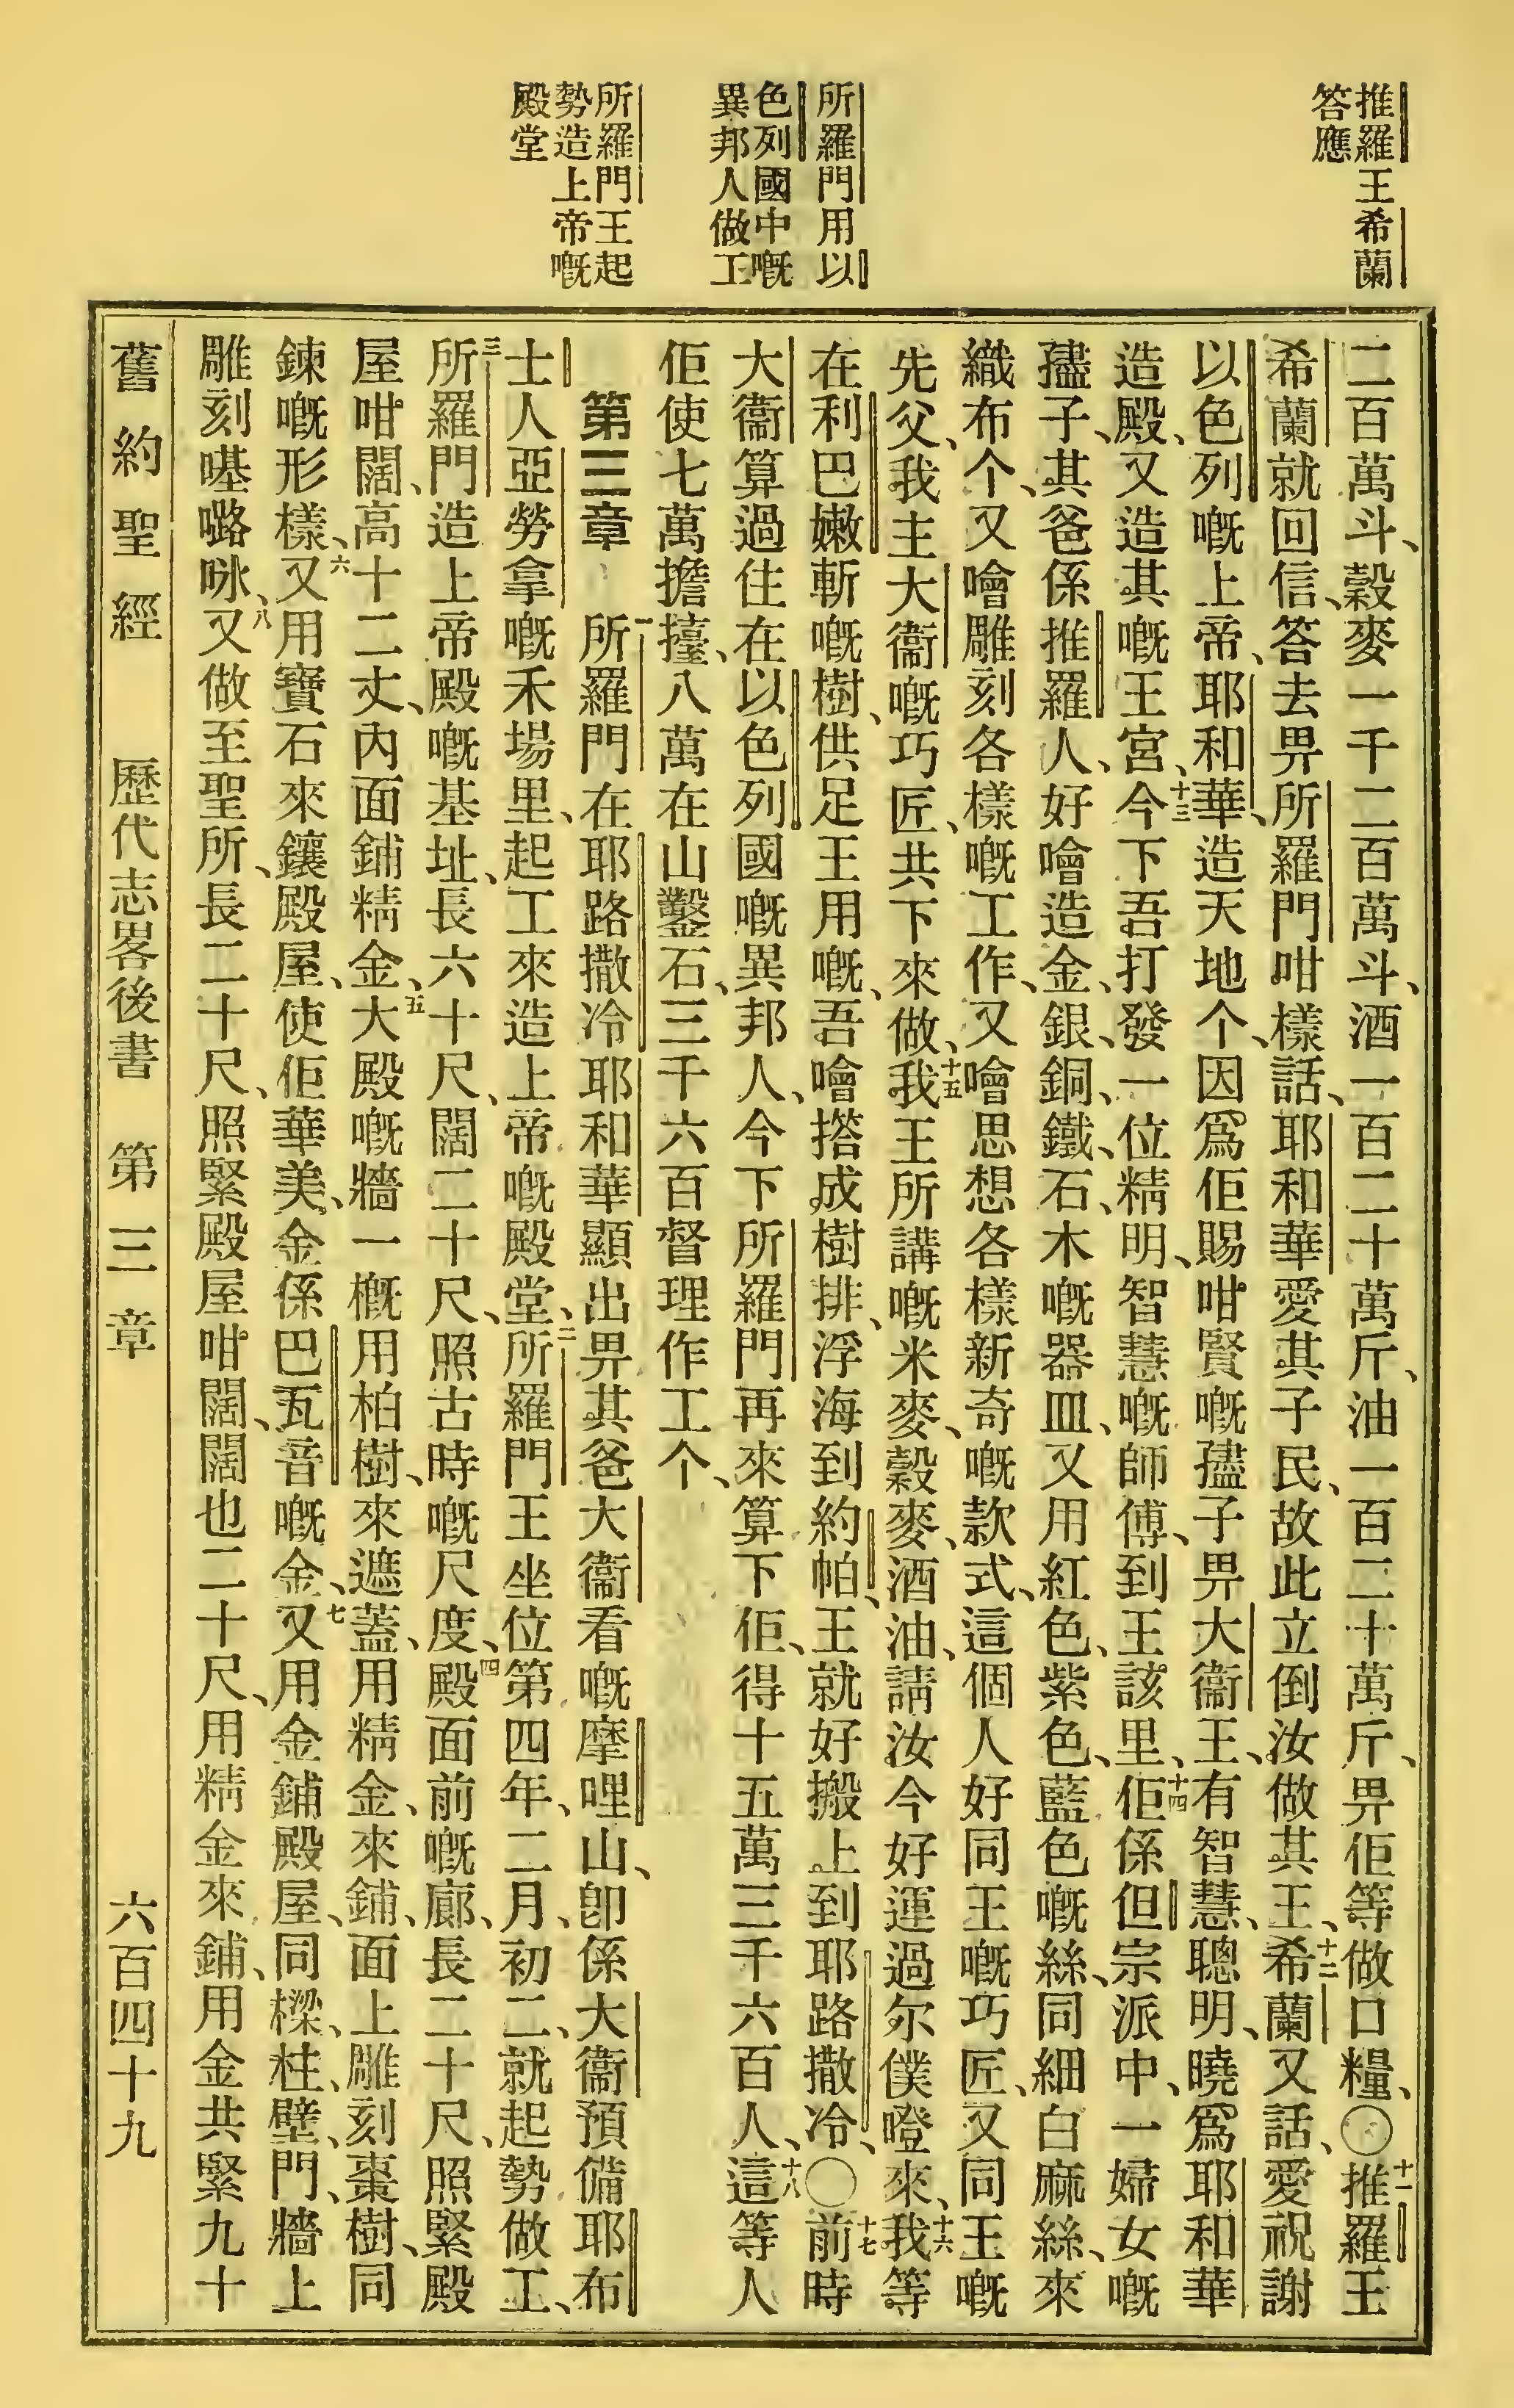 推羅王希蘭
答應
所羅門用以
色列國中嘅
異邦人做工
所羅門王起
勢造上帝嘅
殿堂
二百萬斗、穀麥一千二百萬斗、酒一百二十萬斤、油一百二十萬斤、畀佢等做口糧、〇十一推羅王
希蘭就回信、答去畀所羅門咁樣話、耶和華愛其子民、故此立倒汝做其王、十二希蘭又話、愛祝謝
以色列嘅上帝、耶和華、造天地个、因爲佢賜咁賢嘅孻子畀大衞王、有智慧、聰明、曉爲耶和華
造殿、又造其嘅王宮、十三今下吾打發一位精明、智慧嘅師傅、到王該里、十四佢係但宗派中、一婦女嘅
孻子、其爸係推羅人、好噲造金、銀、銅、鐵、石、木嘅器皿、又用紅色、紫色、藍色嘅絲、同細白麻絲、來
織布个、又噲雕刻各樣嘅工作、又噲思想各樣新奇嘅款式、這個人好同王嘅巧匠、又同王嘅
先父、我主大衞嘅巧匠、共下來做、十五我王所講嘅米麥、穀麥、酒油、請汝今好運過尔僕噔來、十六我等
在利巴嫩斬嘅樹、供足王用嘅、吾噲撘成樹排、浮海到約帕、王就好搬上到耶路撒冷、〇十七前時
大衞算過住在以色列國嘅異邦人、今下所羅門再來算下佢、得十五萬三千六百人、十八這等人
佢使七萬擔擡、八萬在山鑿石、三千六百督理作工个、
第三章 一所羅門在耶路撒冷耶和華顯出畀其爸大衞看嘅摩哩山、卽係大衞預備耶布
士人亞勞拿嘅禾場里、起工來造上帝嘅殿堂、二所羅門王坐位第四年、二月、初二、就起勢做工、
三所羅門造上帝殿嘅基址、長六十尺、闊二十尺、照古時嘅尺度、四殿面前嘅廊、長二十尺、照緊殿
屋咁闊、高十二丈、內面鋪精金、五大殿嘅牆一概用柏樹、來遮蓋、用精金、來鋪、面上雕刻棗樹、同
鍊嘅形樣、六又用寶石來鑲殿屋、使佢華美、金係巴瓦音嘅金、七又用金鋪殿屋、同樑、柱、壁、門、牆上
雕刻𠹌嚕㖠、八又做至聖所、長二十尺、照緊殿屋咁闊、闊也二十尺、用精金來鋪、用金共緊九十
舊約聖經 歷代志畧後書 第三章 六百四十九